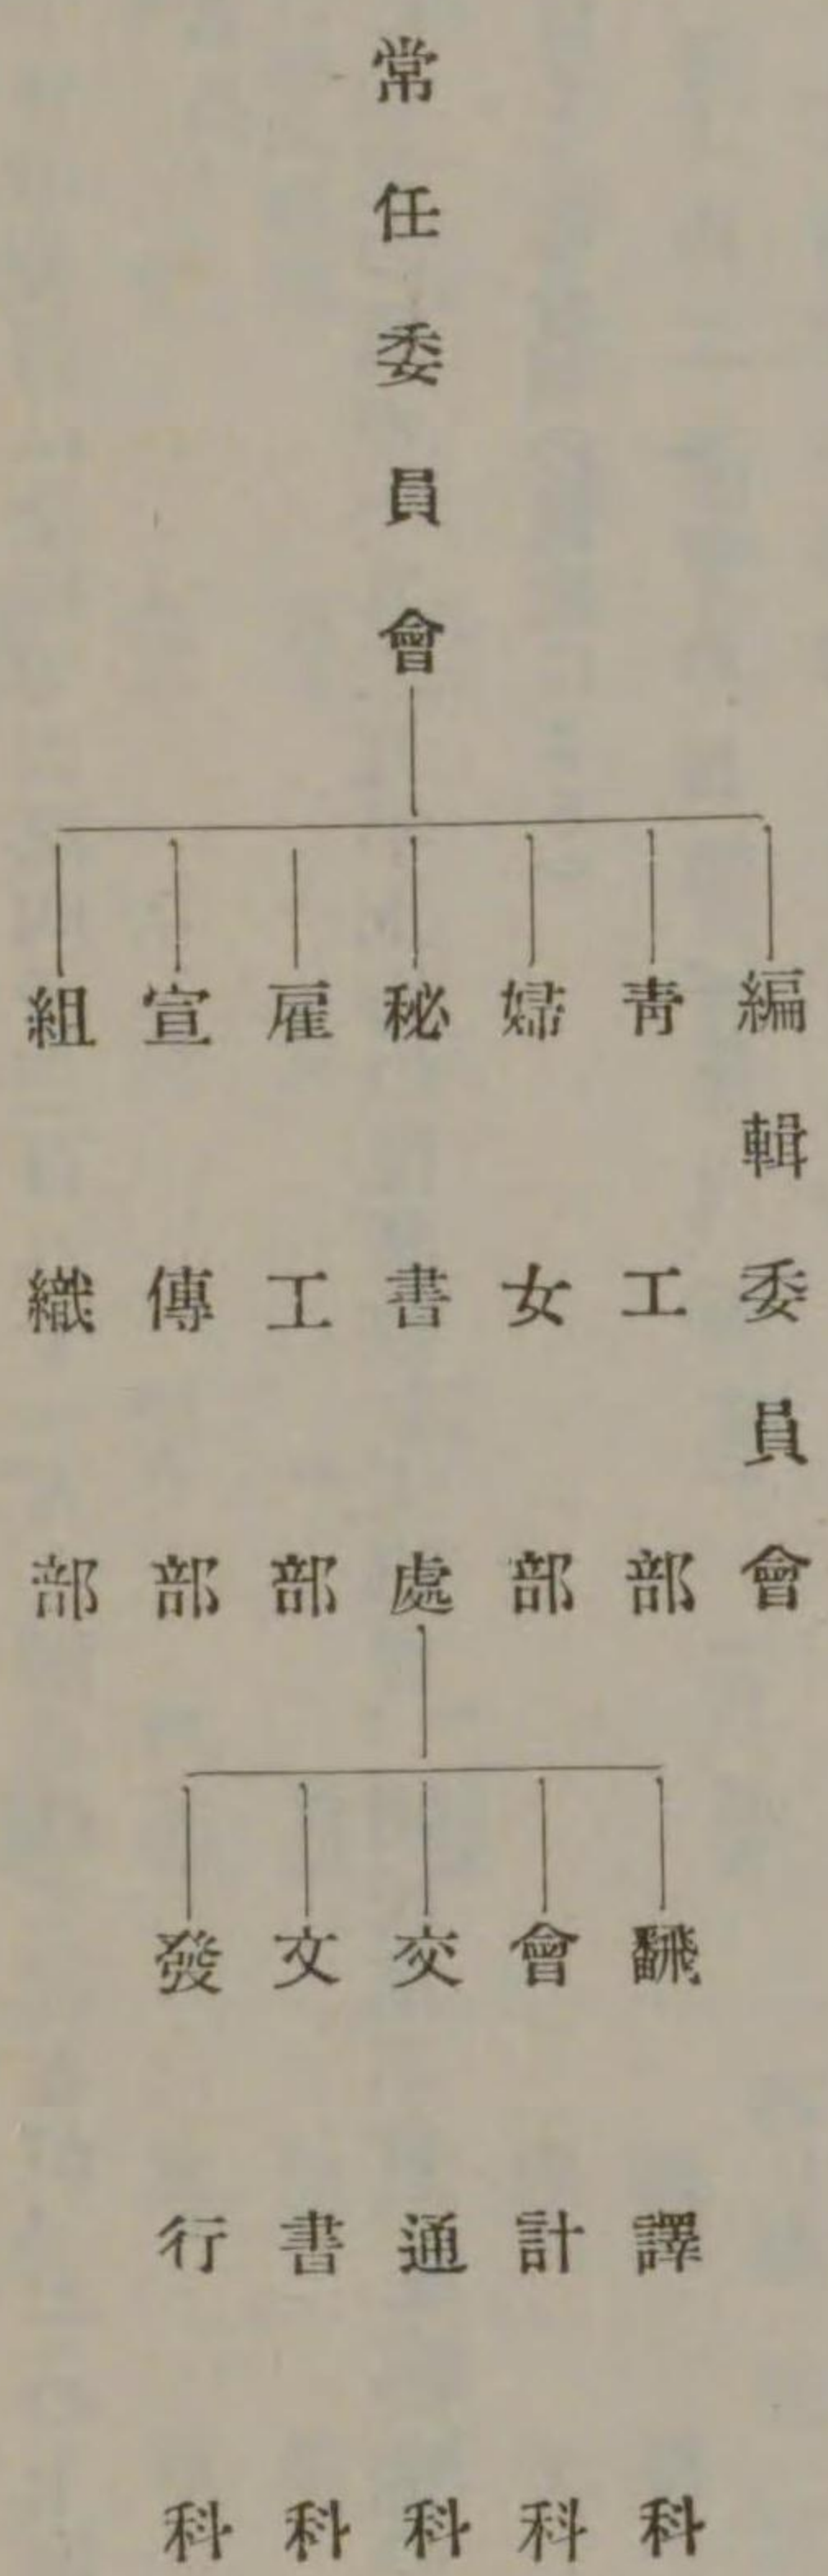 常任委員會
編輯委員會
靑工部
婦女部
秘書處
雇工部
宣傳部
組織部
翻譯科
會計科
交通科
文書科
發行科